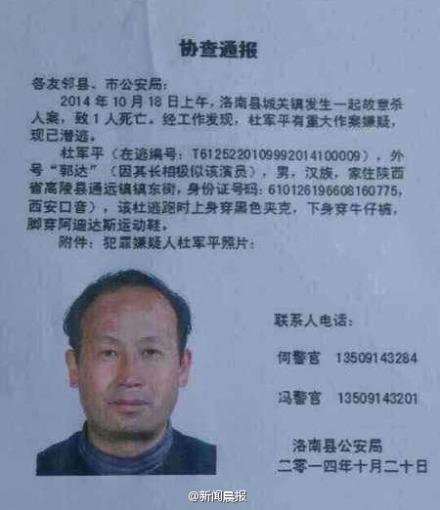 协查通报
各友邻县、市公安局：
2014年10月18日上午，洛南县城关镇发生一起故意杀
人案，致1人死亡。经工作发现，杜军平有重大作案嫌疑，
现已潜逃。
杜军平（在逃编号：T6125220109992014100009），外
号“郭达”（因其长相极似该演员），男，汉族，家住陕西
省高陵县通远镇镇东街，身份证号码：610126196608160775，
西安口音），该杜逃跑时上身穿黑色夹克，下身穿牛仔裤，
脚穿阿迪达斯运动鞋。
附件：犯罪嫌疑人杜军平照片：
联系人电话：
何警官 13509143284
冯警官 13509143201
洛南县公安局
二〇一四年十月二十日
@新闻晨报